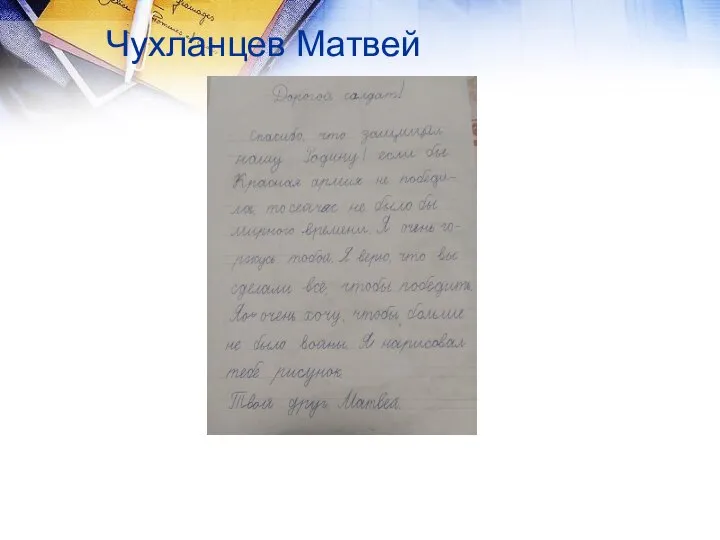 Чухланцев Матвей
Дорогой солдат!
Спасибо, что защищал
нашу Родину! если бы
Красная армия не победи-
ла, то сейчас не было бы
мирного времени. Я очень го-
ржусь тобой. Я верю, что вы
сделали всё, чтобы победить.
Я очень хочу, чтобы больше
не было войны. Я нарисовал
тебе рисунок.
Твой друг Матвей.